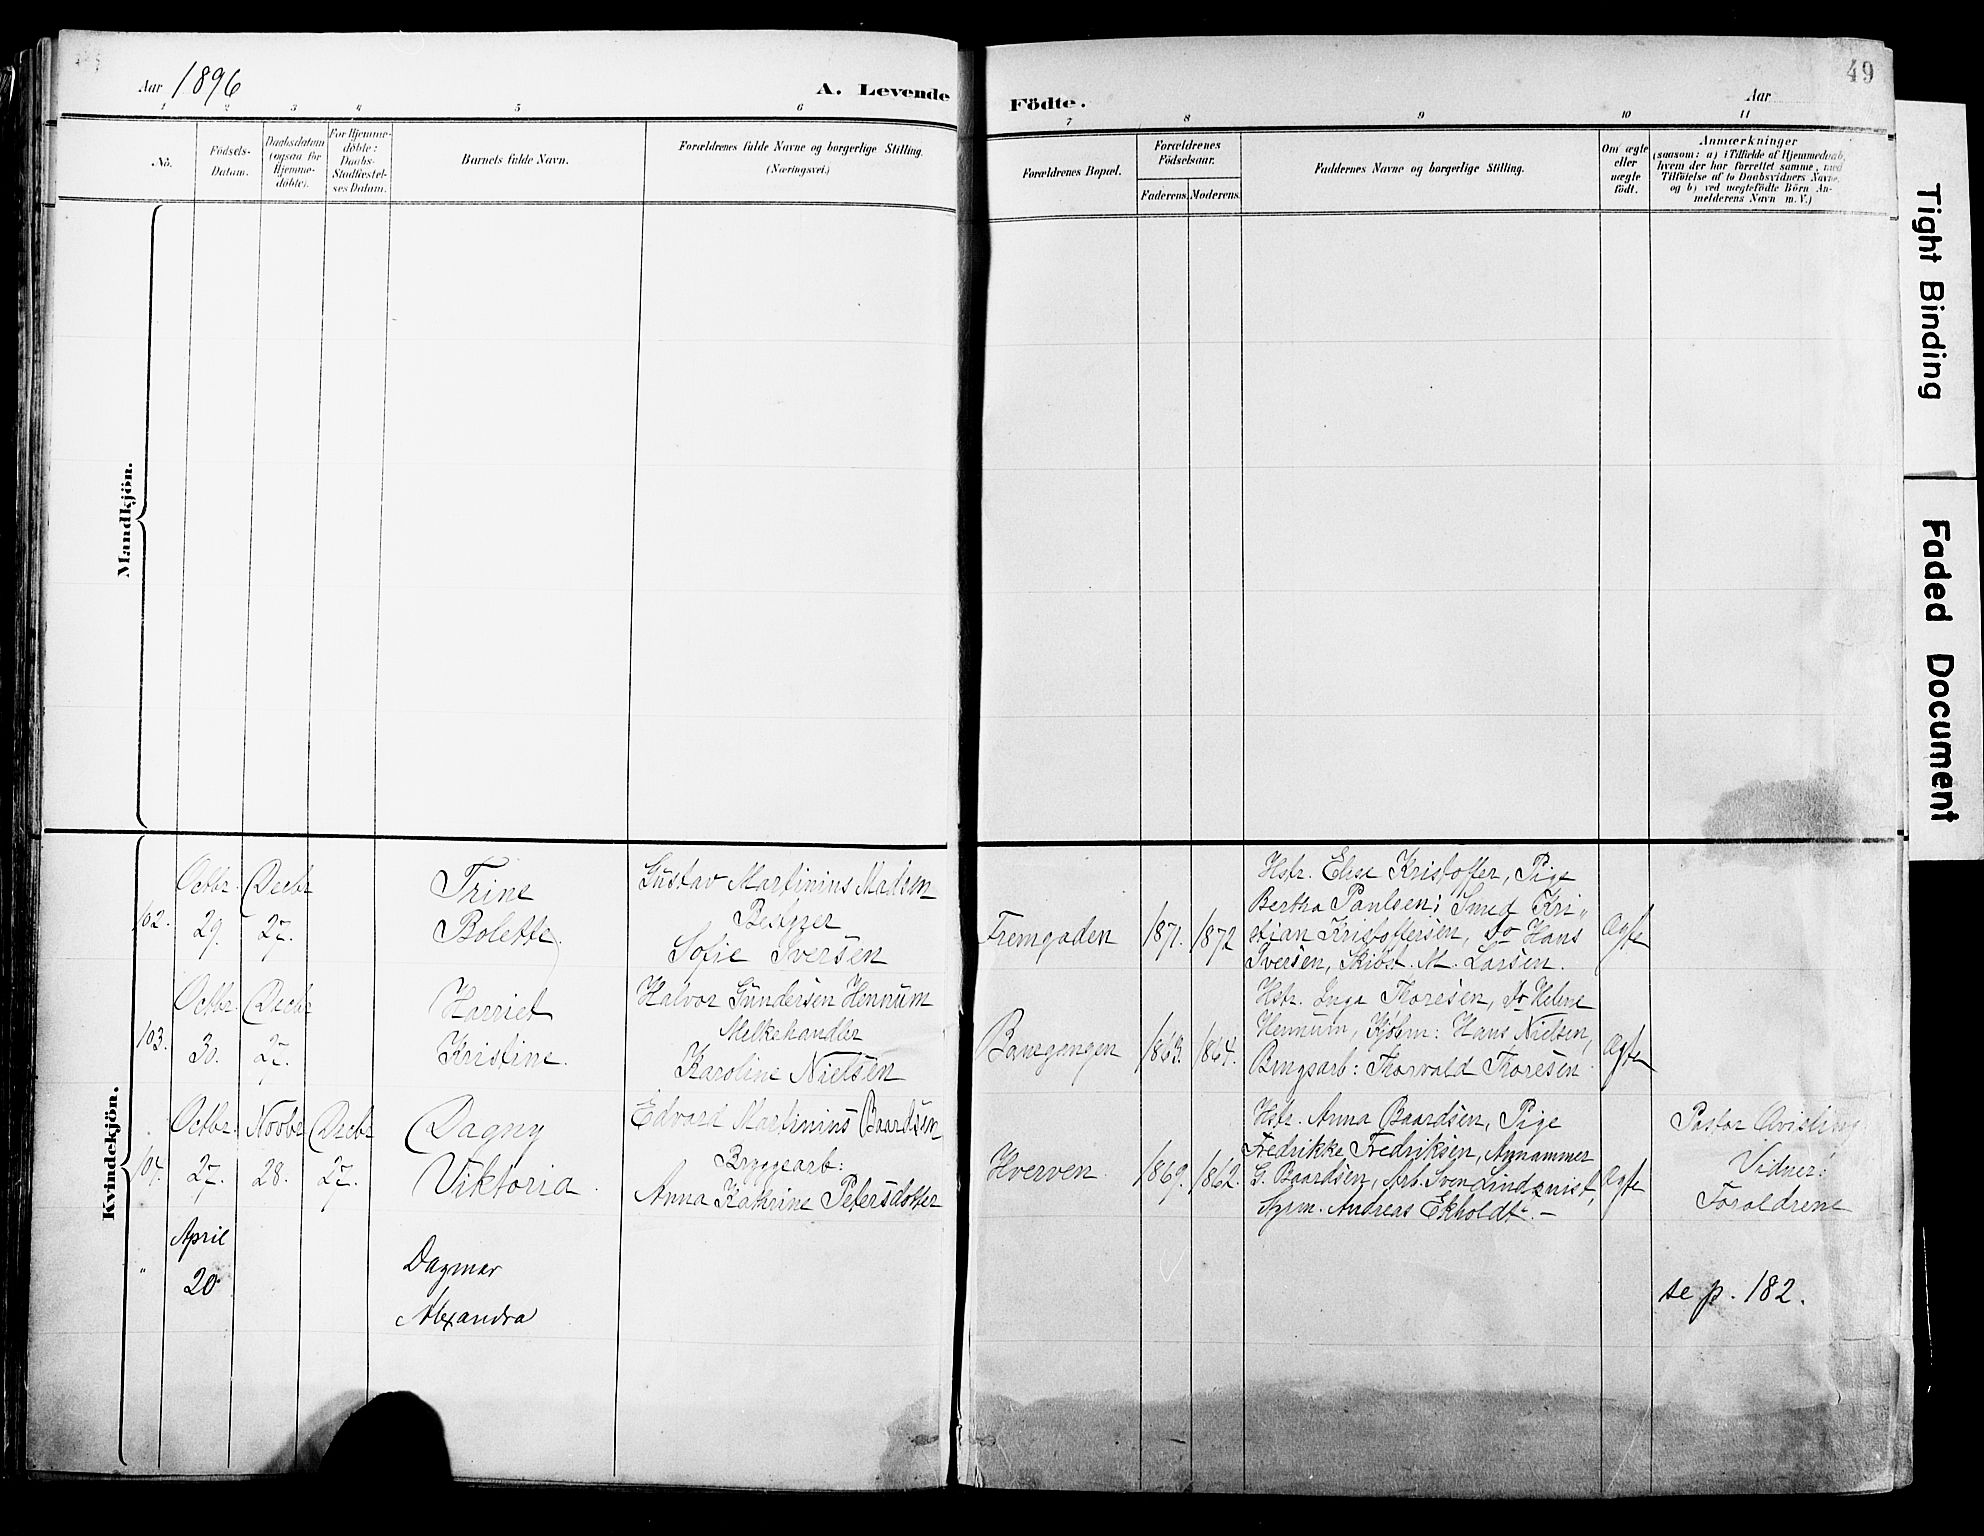 Aar 1896
A. Levende
Födte.
Aar
49
1 2 3 4 5 6 7 8 9 10 11
No.
Födsels-
Datum.
Daabsdatum
(ogsaa for
Hjemme-
döbte).
For Hjemme-
döbte:
Daabs-
Stadfæstel-
ses Datum.
Barnets fulde Navn.
Forældrenes fulde Navne og borgerlige Stilling.
(Næringsvei.)
Forældrenes Bopæl.
Forældrenes
Födselsaar.
Faderens.
Moderens.
Faddernes Navne og borgerlige Stilling.
Om ægte
eller
uægte
födt.
Anmærkninger
(saasom: a) i Tilfælde af Hjemmedaab,
hvem der har forrettet samme, med
Tilföielse af to Daabsvidners Navne,
og b) ved uægtefödte Börn An-
melderens Navn m. V.)
Mandkjön.
Kvindekjön.
102.
Octbr.
29.
Decbr
27.
Trine
Bolette.
Gustav Martinius Madsen
Bestyrer
Sofie Iversen
Fremgaden
1871.
1872
Hstr. Elise Kristoffer, Pige
Bertha Paulsen; Smed Kri-
stian Kristoffersen, Do Hans
Iversen, Skibst. M. Larsen.
Ægte
103.
Octbr.
30.
Decbr
27.
Harriet
Kristine.
Halvor Gundersen Hennum
Melkehandler
Karoline Nielsen
1863.
1864.
Hstr. Inga Thoresen, Do Helene
Hennum, Kjøbm: Hans Nielsen,
Brugsarb: Thorvald Thoresen
Ægte
104.
Octbr.
27.
Novbr
28.
Decbr
27.
Dagny
Viktoria.
Edvard Martinius Baardsen
Bryggearb:
Anna Kathrine Petersdotter
Hverven.
1869.
1862.
Hstr. Anna Baardsen, Pige
Fredrikke Fredriksen,
G. Baardsen, Arb. Sven Lindqvist,
Styrm. Andreas Ekholdt. –
Ægte
Pastor Qvisling
Vidner:
Forældrene
"
April
20
Dagmar
Alexandra
se p. 182.
Tight Binding
Faded Document